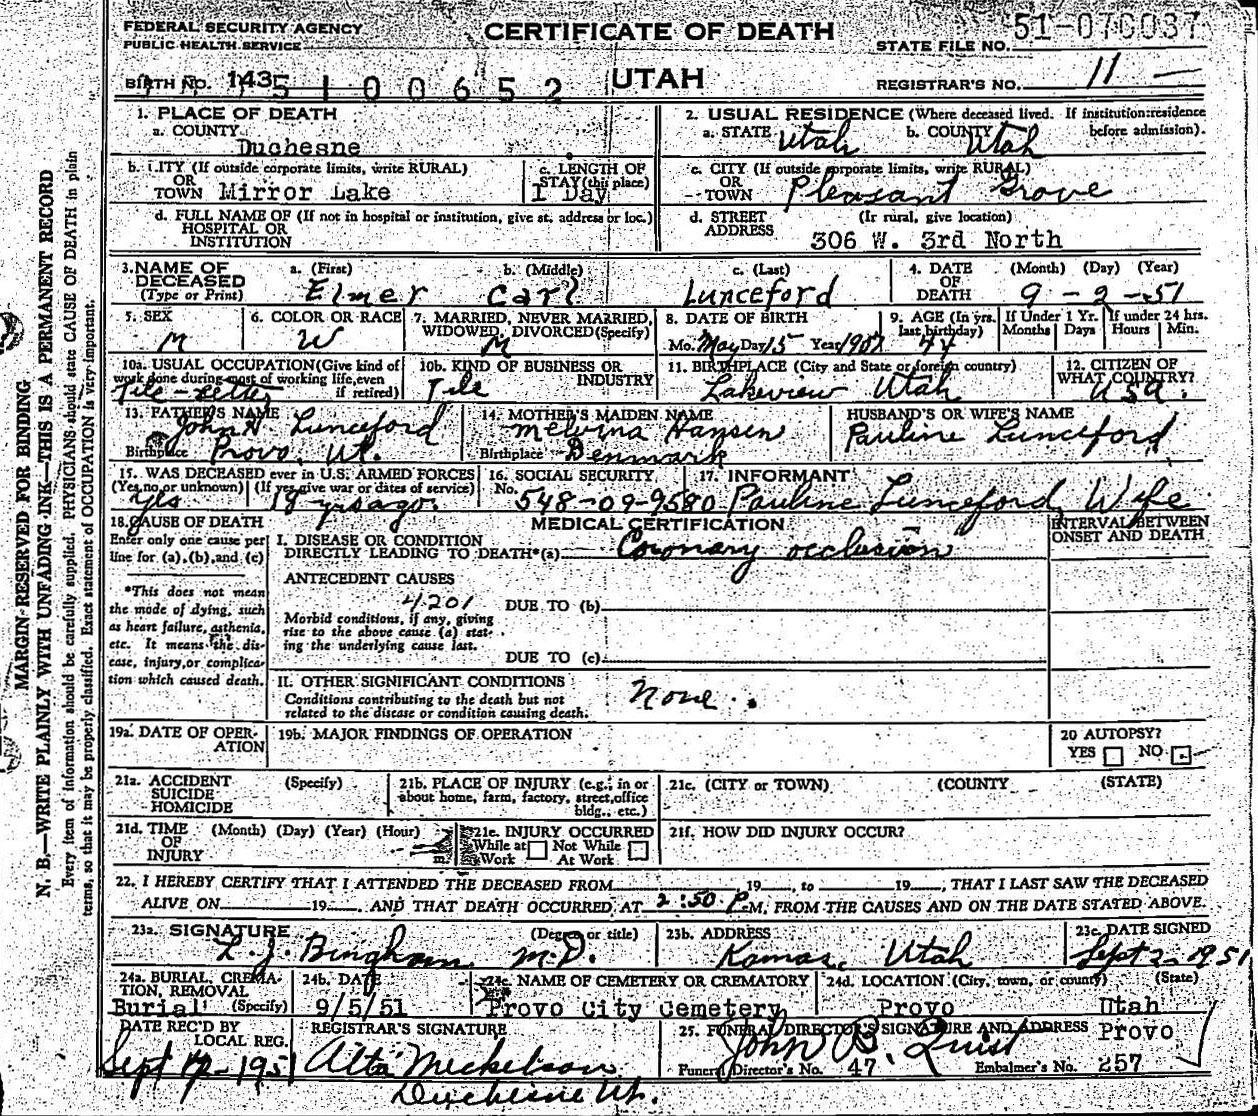 FEDERAL SECURITY AGENCY
PUBLIC HEALTH SERVICE
CERTIFICATE OF DEATH
STATE FILE NO. 51-070037
BIRTH NO. 143 5 1 0 0 6 5 2
UTAH
REGISTRAR'S NO. 11
MARGIN RESERVED FOR BINDING
N. B.—WRITE PLAINLY WITH UNFADING INK—THIS IS A PERMANENT RECORD
Every item of information should be carefully supplied. PHYSICIANS should state CAUSE OF DEATH in plain
terms, so that it may be properly classified. Exact statement of OCCUPATION is very important.
1. PLACE OF DEATH
a. COUNTY
Duchesne
2. USUAL RESIDENCE (Where deceased lived. If institution: residence
before admission).
a. STATE Utah b. COUNTY Utah
b. CITY (If outside corporate limits, write RURAL)
OR
TOWN Mirror Lake
c. LENGTH OF
STAY (this place)
1 Day
c. CITY (If outside corporate limits, write RURAL)
OR
TOWN Pleasant Grove
d. FULL NAME OF (If not in hospital or institution, give st. address or loc.)
HOSPITAL OR
INSTITUTION
d. STREET (If rural, give location)
ADDRESS
306 W. 3rd North
3. NAME OF
DECEASED
(Type or Print)
a. (First) b. (Middle) c. (Last)
Elmer Carl Lunceford
4. DATE (Month) (Day) (Year)
OF
DEATH 9 - 2 - 51
5. SEX
M
6. COLOR OR RACE
W
7. MARRIED, NEVER MARRIED,
WIDOWED, DIVORCED (Specify)
M
8. DATE OF BIRTH
Mo. May Day 15 Year 1907
9. AGE (In yrs.
last birthday)
44
If Under 1 Yr.
Months Days
If under 24 hrs.
Hours Min.
10a. USUAL OCCUPATION (Give kind of
work done during most of working life, even
if retired)
Tile-Setter
10b. KIND OF BUSINESS OR
INDUSTRY
Tile
11. BIRTHPLACE (City and State or foreign country)
Lakeview Utah
12. CITIZEN OF
WHAT COUNTRY?
USA.
13. FATHER'S NAME
John H. Lunceford
Birthplace Provo, Ut.
14. MOTHER'S MAIDEN NAME
Melvina Hansen
Birthplace Denmark
HUSBAND'S OR WIFE'S NAME
Pauline Lunceford
15. WAS DECEASED ever in U.S. ARMED FORCES
(Yes, no or unknown) (If yes, give war or dates of service)
Yes 18 yrs ago.
16. SOCIAL SECURITY
No. 548-09-9580
17. INFORMANT
Pauline Lunceford, Wife
18. CAUSE OF DEATH
Enter only one cause per
line for (a), (b), and (c)
MEDICAL CERTIFICATION
INTERVAL BETWEEN
ONSET AND DEATH
I. DISEASE OR CONDITION
DIRECTLY LEADING TO DEATH*(a) Coronary occlusion
*This does not mean
the mode of dying, such
as heart failure, asthenia,
etc. It means the dis-
ease, injury, or complica-
tion which caused death.
ANTECEDENT CAUSES
4201 DUE TO (b)
Morbid conditions, if any, giving
rise to the above cause (a) stat-
ing the underlying cause last.
DUE TO (c)
II. OTHER SIGNIFICANT CONDITIONS
Conditions contributing to the death but not
related to the disease or condition causing death.
None.
19a. DATE OF OPER-
ATION
19b. MAJOR FINDINGS OF OPERATION
20 AUTOPSY?
YES NO
21a. ACCIDENT (Specify)
SUICIDE
HOMICIDE
21b. PLACE OF INJURY (e.g., in or
about home, farm, factory, street, office
bldg., etc.)
21c. (CITY or TOWN) (COUNTY) (STATE)
21d. TIME (Month) (Day) (Year) (Hour)
OF
INJURY m.
21e. INJURY OCCURRED
While at Not While
Work At Work
21f. HOW DID INJURY OCCUR?
22. I HEREBY CERTIFY THAT I ATTENDED THE DECEASED FROM 19, to 19, THAT I LAST SAW THE DECEASED
ALIVE ON 19, AND THAT DEATH OCCURRED AT 2:50 P.M, FROM THE CAUSES AND ON THE DATE STATED ABOVE.
23a. SIGNATURE (Degree or title)
L. J. Bingham M.D.
23b. ADDRESS
Kamas, Utah
23c. DATE SIGNED
Sept 2-1951
24a. BURIAL, CREMA-
TION, REMOVAL
(Specify)
Burial
24b. DATE
9/5/51
24c. NAME OF CEMETERY OR CREMATORY
Provo City Cemetery
24d. LOCATION (City, town, or county) (State)
Provo Utah
DATE REC'D BY
LOCAL REG.
Sept 1951
REGISTRAR'S SIGNATURE
Alta Meckelson
Duchesne Ut.
25. FUNERAL DIRECTOR'S SIGNATURE AND ADDRESS Provo
John
Funeral Director's No. 47 Embalmer's No. 257